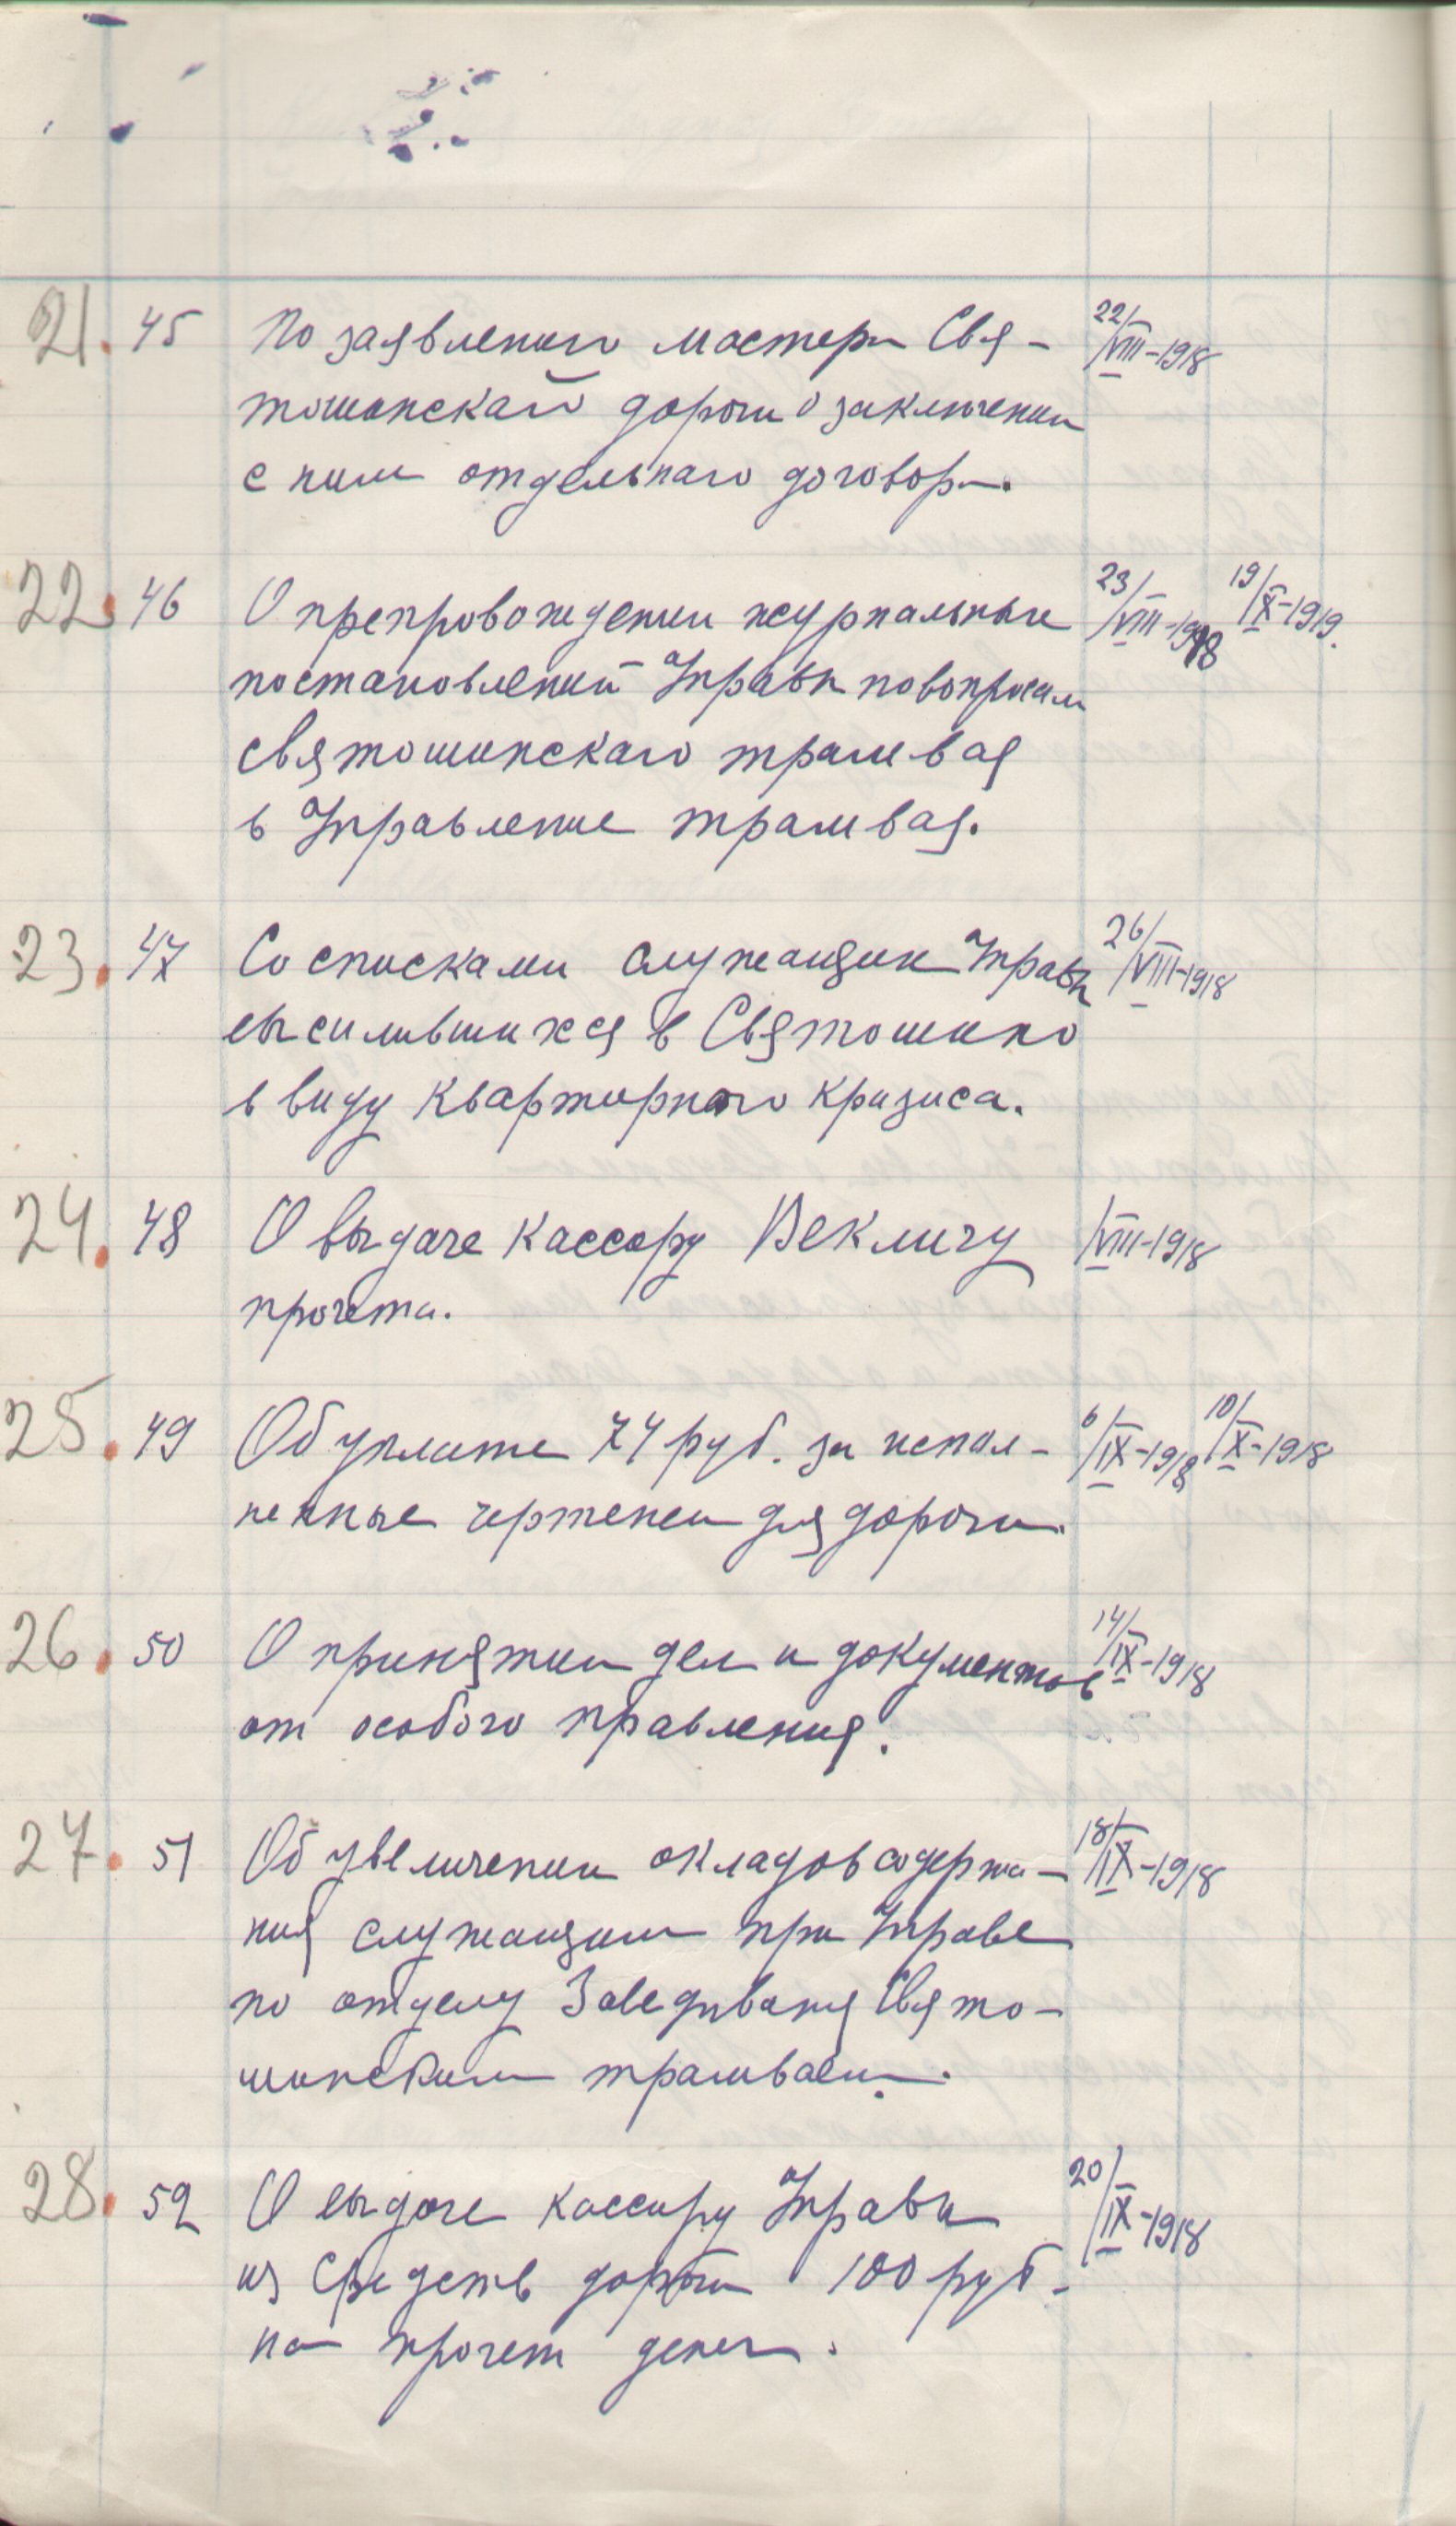 21. 45 По заявлению мастера Свя- 22/VIII-1918
тошинской дороги о заключении
с ним отдельнаго договора.
22. 46 О препровождении журнальные 23/VIII-1918 19/IX-1919.
постановлений Управы по вопросам
святошинскаго трамвая
в Управление трамвая.
23. 47 Со списками служащих Управы 26/VIII-1918
выселившихся в Святошино
в виду квартирнаго кризиса.
24. 48 О выдаче кассиру Векличу /VIII-1918
прочета.
25. 49 Об уплате 74 руб. за испол- 6/IX-1918 10/X-1918
ненные чертежей для дороги.
26. 50 О принятии дел и документов 14/IX-1918
от особого правления.
27. 51 Об увеличении окладов содержа- 18/IX-1918
ния служащим при Управе
по отделу Заведывания Свято-
шинским трамваем.
28. 52 О выдаче кассиру Управы 20/IX-1918
из средств дороги 100 руб.
на прочет денег.